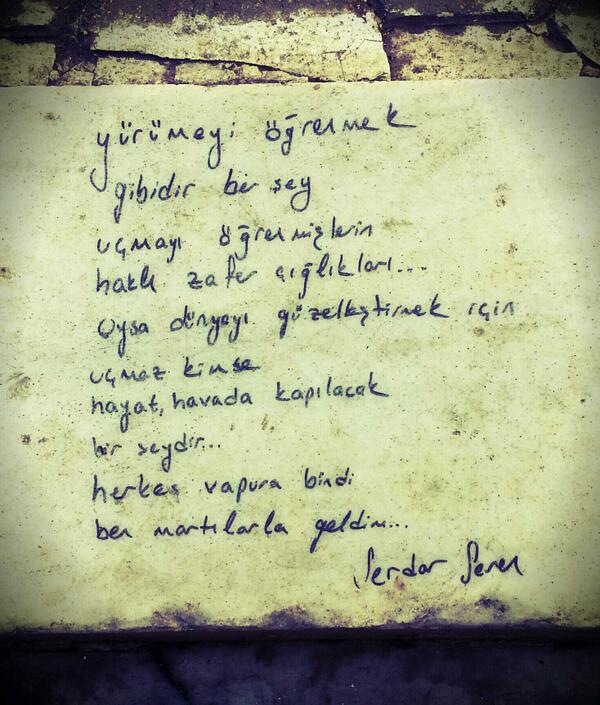 yürümeyi öğrenmek
gibidir bir şey
uçmayı öğrenmişlerin
haklı zafer çığlıkları...
Oysa dünyayı güzelleştirmek için
uçmaz kimse
hayat, havada kapılacak
bir şeydir...
herkes vapura bindi
ben martılarla geldim...
Serdar Seren